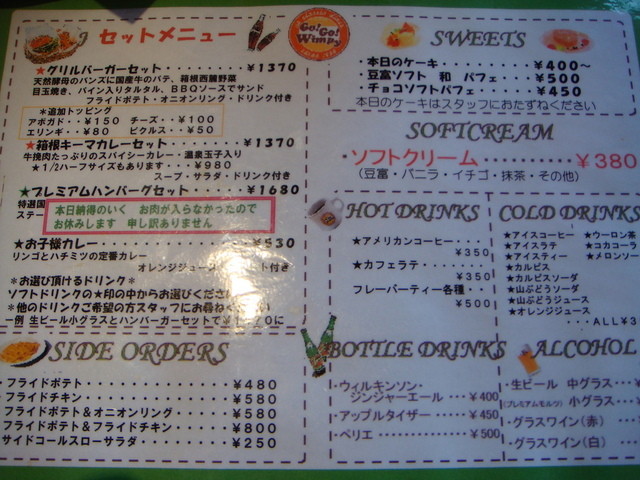 セットメニュー
Go! Go! Wimpy
★グリルバーガーセット ・・・・・・・・・ ¥1370
天然酵母のバンズに国産牛のパテ、箱根西麓野菜
目玉焼き、パイン入りタルタル、BBQソースでサンド
フライドポテト・オニオンリング・ドリンク付き
*追加トッピング
アボガド・・¥150 チーズ・・¥100
エリンギ・・¥80 ピクルス・・¥50
★箱根キーマカレーセット・・・・・・・¥1370
牛挽肉たっぷりのスパイシーカレー・温泉玉子入り
★1/2ハーフサイズもあります・・¥980
スープ・サラダ・ドリンク付き
★プレミアムハンバーグセット ¥1680
特選国
ステー
本日納得のいく お肉が入らなかったので
お休みします 申し訳ありません
★お子様カレー ¥530
リンゴとハチミツの定番カレー
オレンジジュース ート付き
*お選び頂けるドリンク*
ソフトドリンクの★印の中からお選びくださ
*他のドリンクご希望の方スタッフにお尋ね
一例 生ビール小グラスとハンバーガーセットで に
SIDE ORDERS
・フライドポテト・・・・・・・・・・・・¥480
・フライドチキン・・・・・・・・・・・・¥580
・フライドポテト&オニオンリング・・・・¥580
・フライドポテト&フライドチキン・・・・¥800
サイドコールスローサラダ・・・・・・・・¥250
SWEETS
・本日のケーキ・・・・・・・・¥400~
・豆富ソフト 和 パフェ・・・・¥500
・チョコソフトパフェ・・・・・¥450
本日のケーキはスタッフにおたずねください
SOFTCREAM
・ソフトクリーム・・・・・・・・¥380
(豆富・バニラ・イチゴ・抹茶・その他)
HOT DRINKS
★アメリカンコーヒー・・・
¥350
★カフェラテ・・・・・・・
¥350
フレーバーティー各種・・
¥500
COLD DRINKS
★アイスコーヒー ★ウーロン茶
★アイスラテ ★コカコーラ
★アイスティー ★メロンソー
★カルピス
★カルピスソーダ
★山ぶどうソーダ
★山ぶどうジュース
★オレンジジュース
・・・ALL¥3
BOTTLE DRINKS
・ウィルキンソン・
ジンジャーエール・・・¥400
・アップルタイザー・・・¥450
・ペリエ・・・・・・・・¥500
ALCOHOL
・生ビール 中グラス・・・¥
(プレミアムモルツ) 小グラス・・・
・グラスワイン(赤)
・グラスワイン(白)